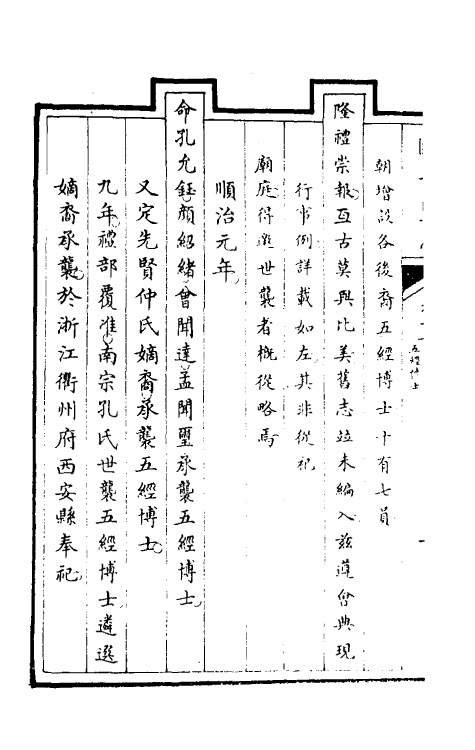 朝增設各後裔五經博士十有七員
隆禮崇報亙古莫與比美舊志竝未編入玆遵會典現
行事例詳載如左其非從祀
廟庭得邀世襲者槪從略焉
順治元年
命孔允鈺顔紹緒曾聞達孟聞璽承襲五經博士
又定先賢仲氏嫡裔承襲五經博士
九年禮部覆准南宗孔氏世襲五經博士遴選
嫡裔承襲於浙江衢州府西安縣奉祀
五經博士